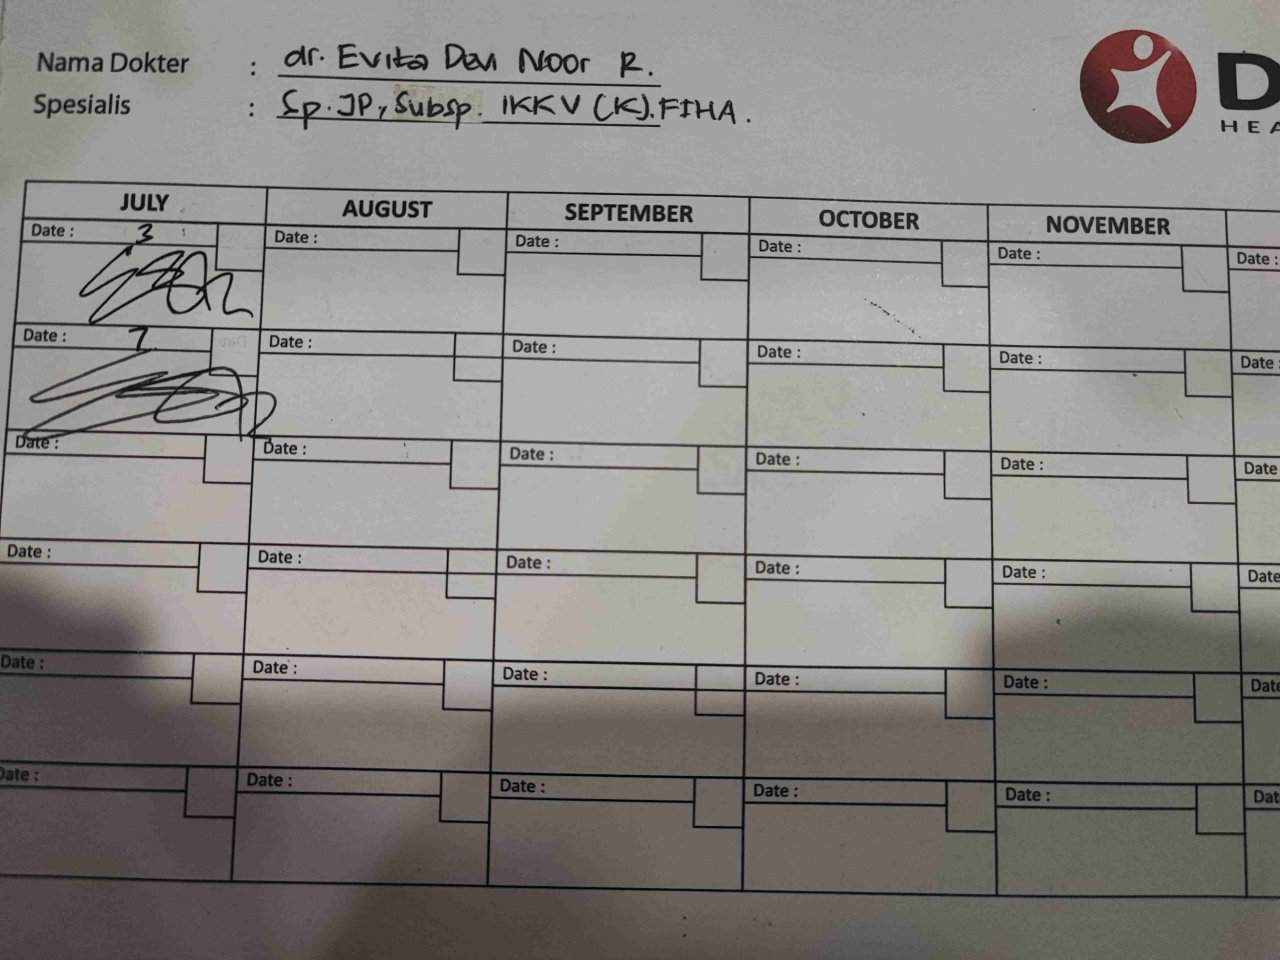 Nama Dokter : dr. Evita Devi Noor R.
Spesialis : Sp. JP, Subsp. IKKV (K). FIHA.
D
HEA
JULY AUGUST SEPTEMBER OCTOBER NOVEMBER
Date : 3 Date : Date : Date : Date : Date :
Date : 7 Date : Date : Date : Date : Date :
Date : Date : Date : Date : Date : Date
Date : Date : Date : Date : Date : Date
Date : Date : Date : Date : Date : Date
Date : Date : Date : Date : Date : Dat